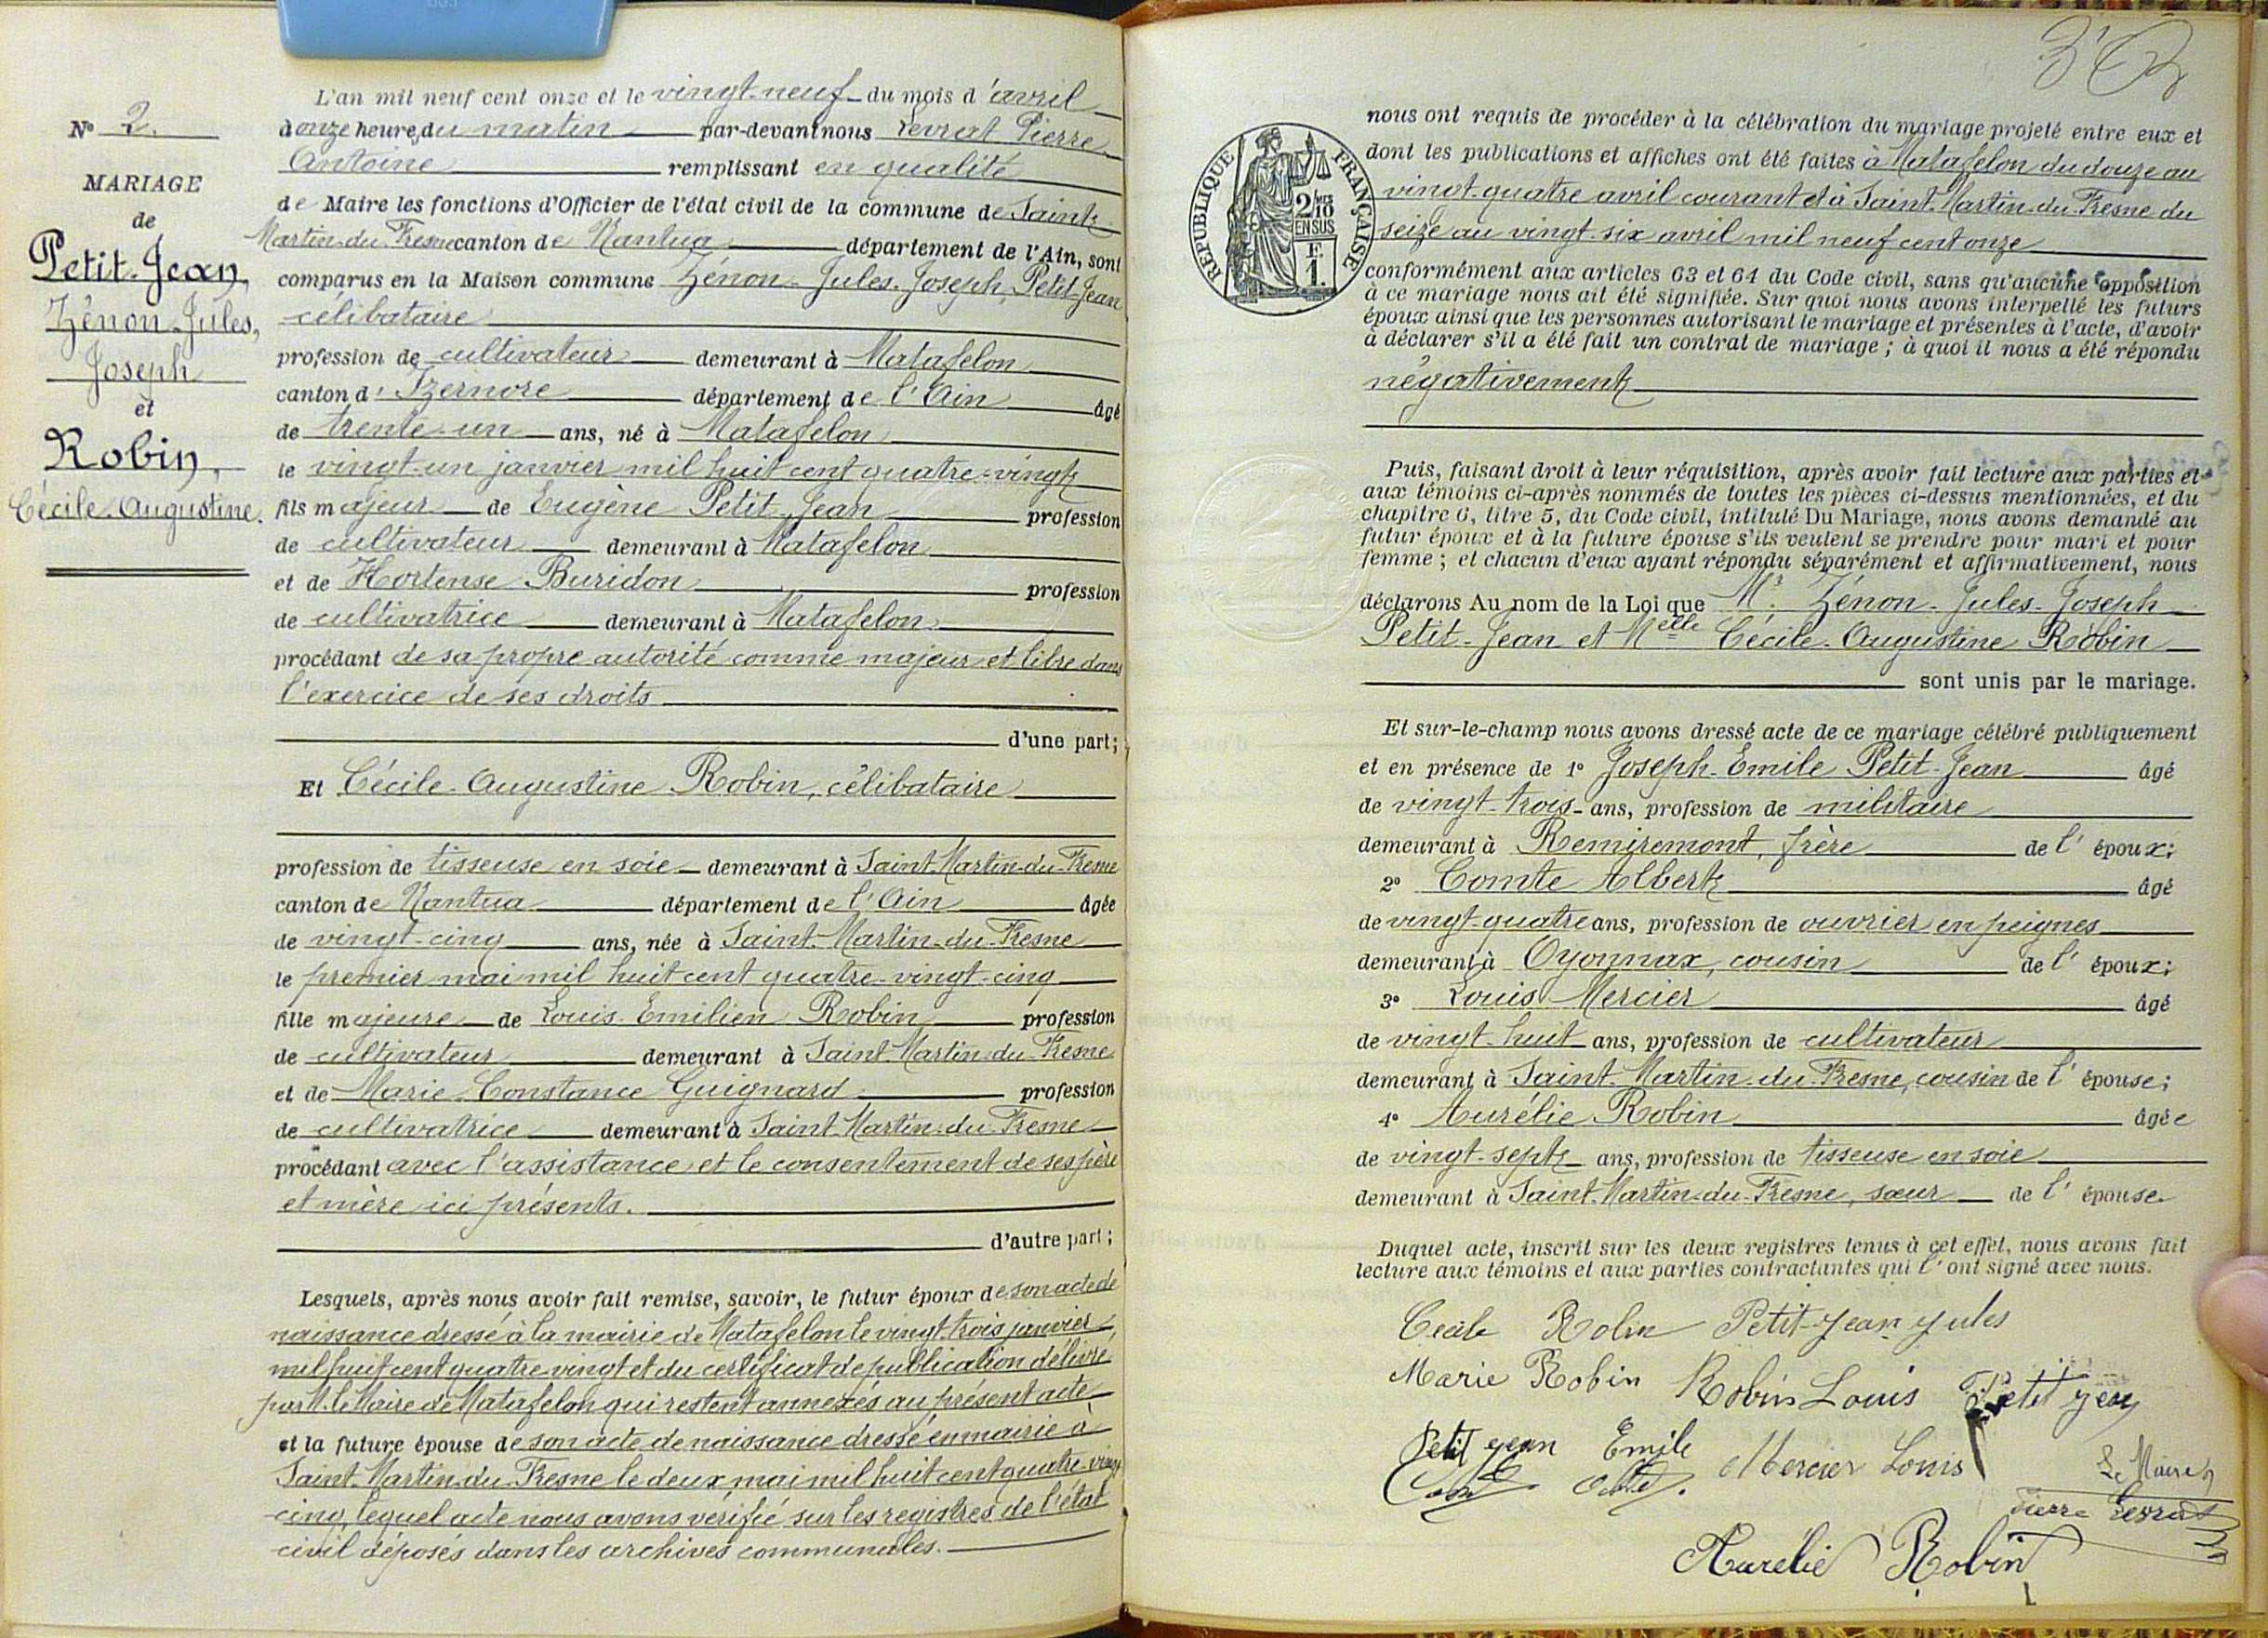 N° 2.
MARIAGE
de
Petit-Jean,
Zénon-Jules,
Joseph
et
Robin,
Cécile-Augustine.
L'an mil neuf cent onze et le vingt-neuf du mois d'avril
à onze heures du matin par-devant nous Levrat Pierre
Antoine remplissant en qualité
de Maire les fonctions d'Officier de l'état civil de la commune de Saint
Martin-du-Fresne canton de Nantua département de l'Ain, sont
comparus en la Maison commune Zénon-Jules-Joseph, Petit-Jean
célibataire
profession de cultivateur demeurant à Matafelon
canton d'Izernore département de l'Ain âgé
de trente-un ans, né à Matafelon
le vingt-un janvier mil huit cent quatre-vingt
fils majeur de Eugène Petit-Jean profession
de cultivateur demeurant à Matafelon
et de Hortense Buridon profession
de cultivatrice demeurant à Matafelon
procédant de sa propre autorité comme majeur et libre dans
l'exercice de ses droits
d'une part;
Et Cécile-Augustine Robin, célibataire
profession de tisseuse en soie demeurant à Saint-Martin-du-Fresne
canton de Nantua département de l'Ain âgée
de vingt-cinq ans, née à Saint-Martin-du-Fresne
le premier mai mil huit cent quatre-vingt-cinq
fille majeure de Louis-Emilien Robin profession
de cultivateur demeurant à Saint-Martin-du-Fresne
et de Marie-Constance Guignard profession
de cultivatrice demeurant à Saint-Martin-du-Fresne
procédant avec l'assistance et le consentement de ses père
et mère ici présents.
d'autre part;
Lesquels, après nous avoir fait remise, savoir, le futur époux de son acte de
naissance dressé à la mairie de Matafelon le vingt-trois janvier
mil huit cent quatre-vingt et du certificat de publication délivré
par M. le Maire de Matafelon qui restent annexés au présent acte
et la future épouse de son acte de naissance dressé en mairie à
Saint-Martin-du-Fresne le deux mai mil huit cent quatre-vingt
cinq, lequel acte nous avons vérifié sur les registres de l'état
civil déposés dans les archives communales.
REPUBLIQUE FRANÇAISE
2/10
EN SUS
F.
1.
nous ont requis de procéder à la célébration du mariage projeté entre eux et
dont les publications et affiches ont été faites à Matafelon du douze au
vingt-quatre avril courant et à Saint-Martin-du-Fresne du
seize au vingt-six avril mil neuf cent onze
conformément aux articles 63 et 64 du Code civil, sans qu'aucune opposition
à ce mariage nous ait été signifiée. Sur quoi nous avons interpellé les futurs
époux ainsi que les personnes autorisant le mariage et présentes à l'acte, d'avoir
à déclarer s'il a été fait un contrat de mariage; à quoi il nous a été répondu
négativement
Puis, faisant droit à leur réquisition, après avoir fait lecture aux parties et
aux témoins ci-après nommés de toutes les pièces ci-dessus mentionnées, et du
chapitre 6, titre 5, du Code civil, intitulé Du Mariage, nous avons demandé au
futur époux et à la future épouse s'ils veulent se prendre pour mari et pour
femme; et chacun d'eux ayant répondu séparément et affirmativement, nous
déclarons Au nom de la Loi que Mr. Zénon-Jules-Joseph
Petit-Jean et Melle Cécile-Augustine Robin
sont unis par le mariage.
Et sur-le-champ nous avons dressé acte de ce mariage célébré publiquement
et en présence de 1° Joseph-Emile Petit-Jean âgé
de vingt-trois ans, profession de militaire
demeurant à Remiremont, frère de l'époux;
2° Comte Albert âgé
de vingt-quatre ans, profession de ouvrier en peignes
demeurant à Oyonnax, cousin de l'époux;
3° Louis Mercier âgé
de vingt-huit ans, profession de cultivateur
demeurant à Saint-Martin-du-Fresne, cousin de l'épouse;
4° Aurélie Robin âgée
de vingt-sept ans, profession de tisseuse en soie
demeurant à Saint-Martin-du-Fresne, sœur de l'épouse.
Duquel acte, inscrit sur les deux registres tenus à cet effet, nous avons fait
lecture aux témoins et aux parties contractantes qui l'ont signé avec nous.
Cécile Robin Petit-Jean Jules
Marie Robin Robin Louis Petit Jean
Petit Jean Emile Mercier Louis
Le Maire
Pierre Levrat
Aurélie Robin